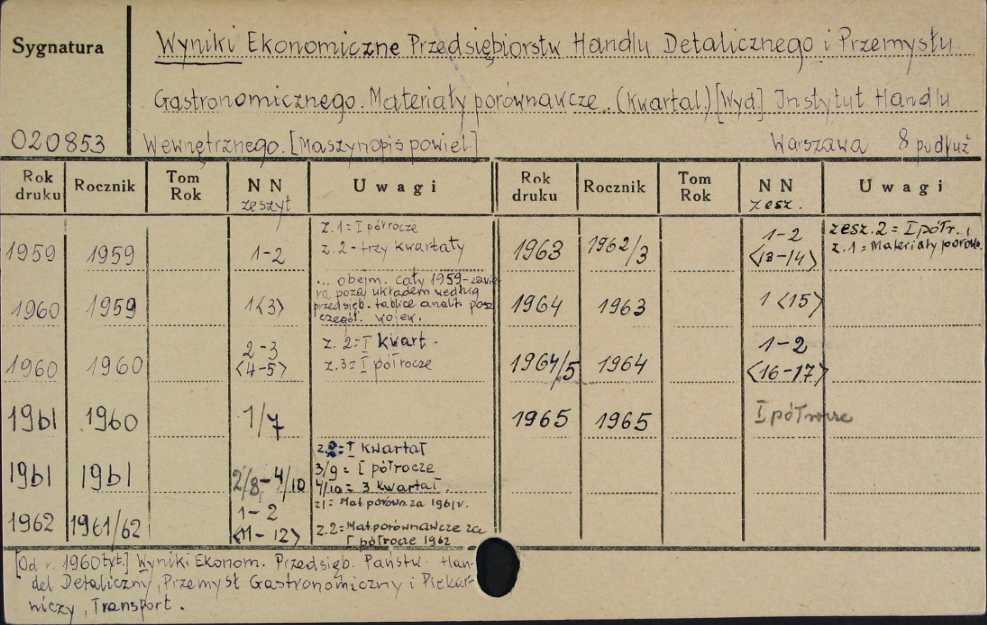 Sygnatura
Wyniki Ekonomiczne Przedsiębiorstw Handlu Detalicznego i Przemysłu
Gastronomicznego. Materiały porównawcze. (Kwartal.) [Wyd] Instytut Handlu
020853 Wewnętrznego. [Maszynopis powiel] Warszawa 8 podłuż
Rok druku Rocznik Tom Rok NN zeszyt Uwagi Rok druku Rocznik Tom Rok NN zesz. Uwagi
1959 1959 1-2 z.1 = I półrocze
z.2 - trzy kwartały
1960 1959 1<3> ... obejm. cały 1959 - zawie
ra poza układem według
przedsięb. tablice analit. posz
czegól. wojew.
1960 1960 2-3 <4-5> z. 2 = I kwart.
z.3 = I półrocze
1961 1960 1/7
1961 1961 2/8-4/10 z.2 = I kwartał
3/9 = I półrocze
4/10 = 3 kwartał.
z1 = Mat porówn. za 1961r.
1962 1961/62 1-2 <11-12> z.2 = Mat porównawcze za
I półrocze 1962
1963 1962/3 1-2 <13-14> zesz. 2 = I półr.,
z.1 = Materiały porówn.
1964 1963 1 <15>
1964/5 1964 1-2 <16-17>
1965 1965 I półrocze
[Od r. 1960 tyt.] Wyniki Ekonom. Przedsięb. Państw. Han-
del Detaliczny, Przemysł Gastronomiczny i Piekar-
niczy, Transport.